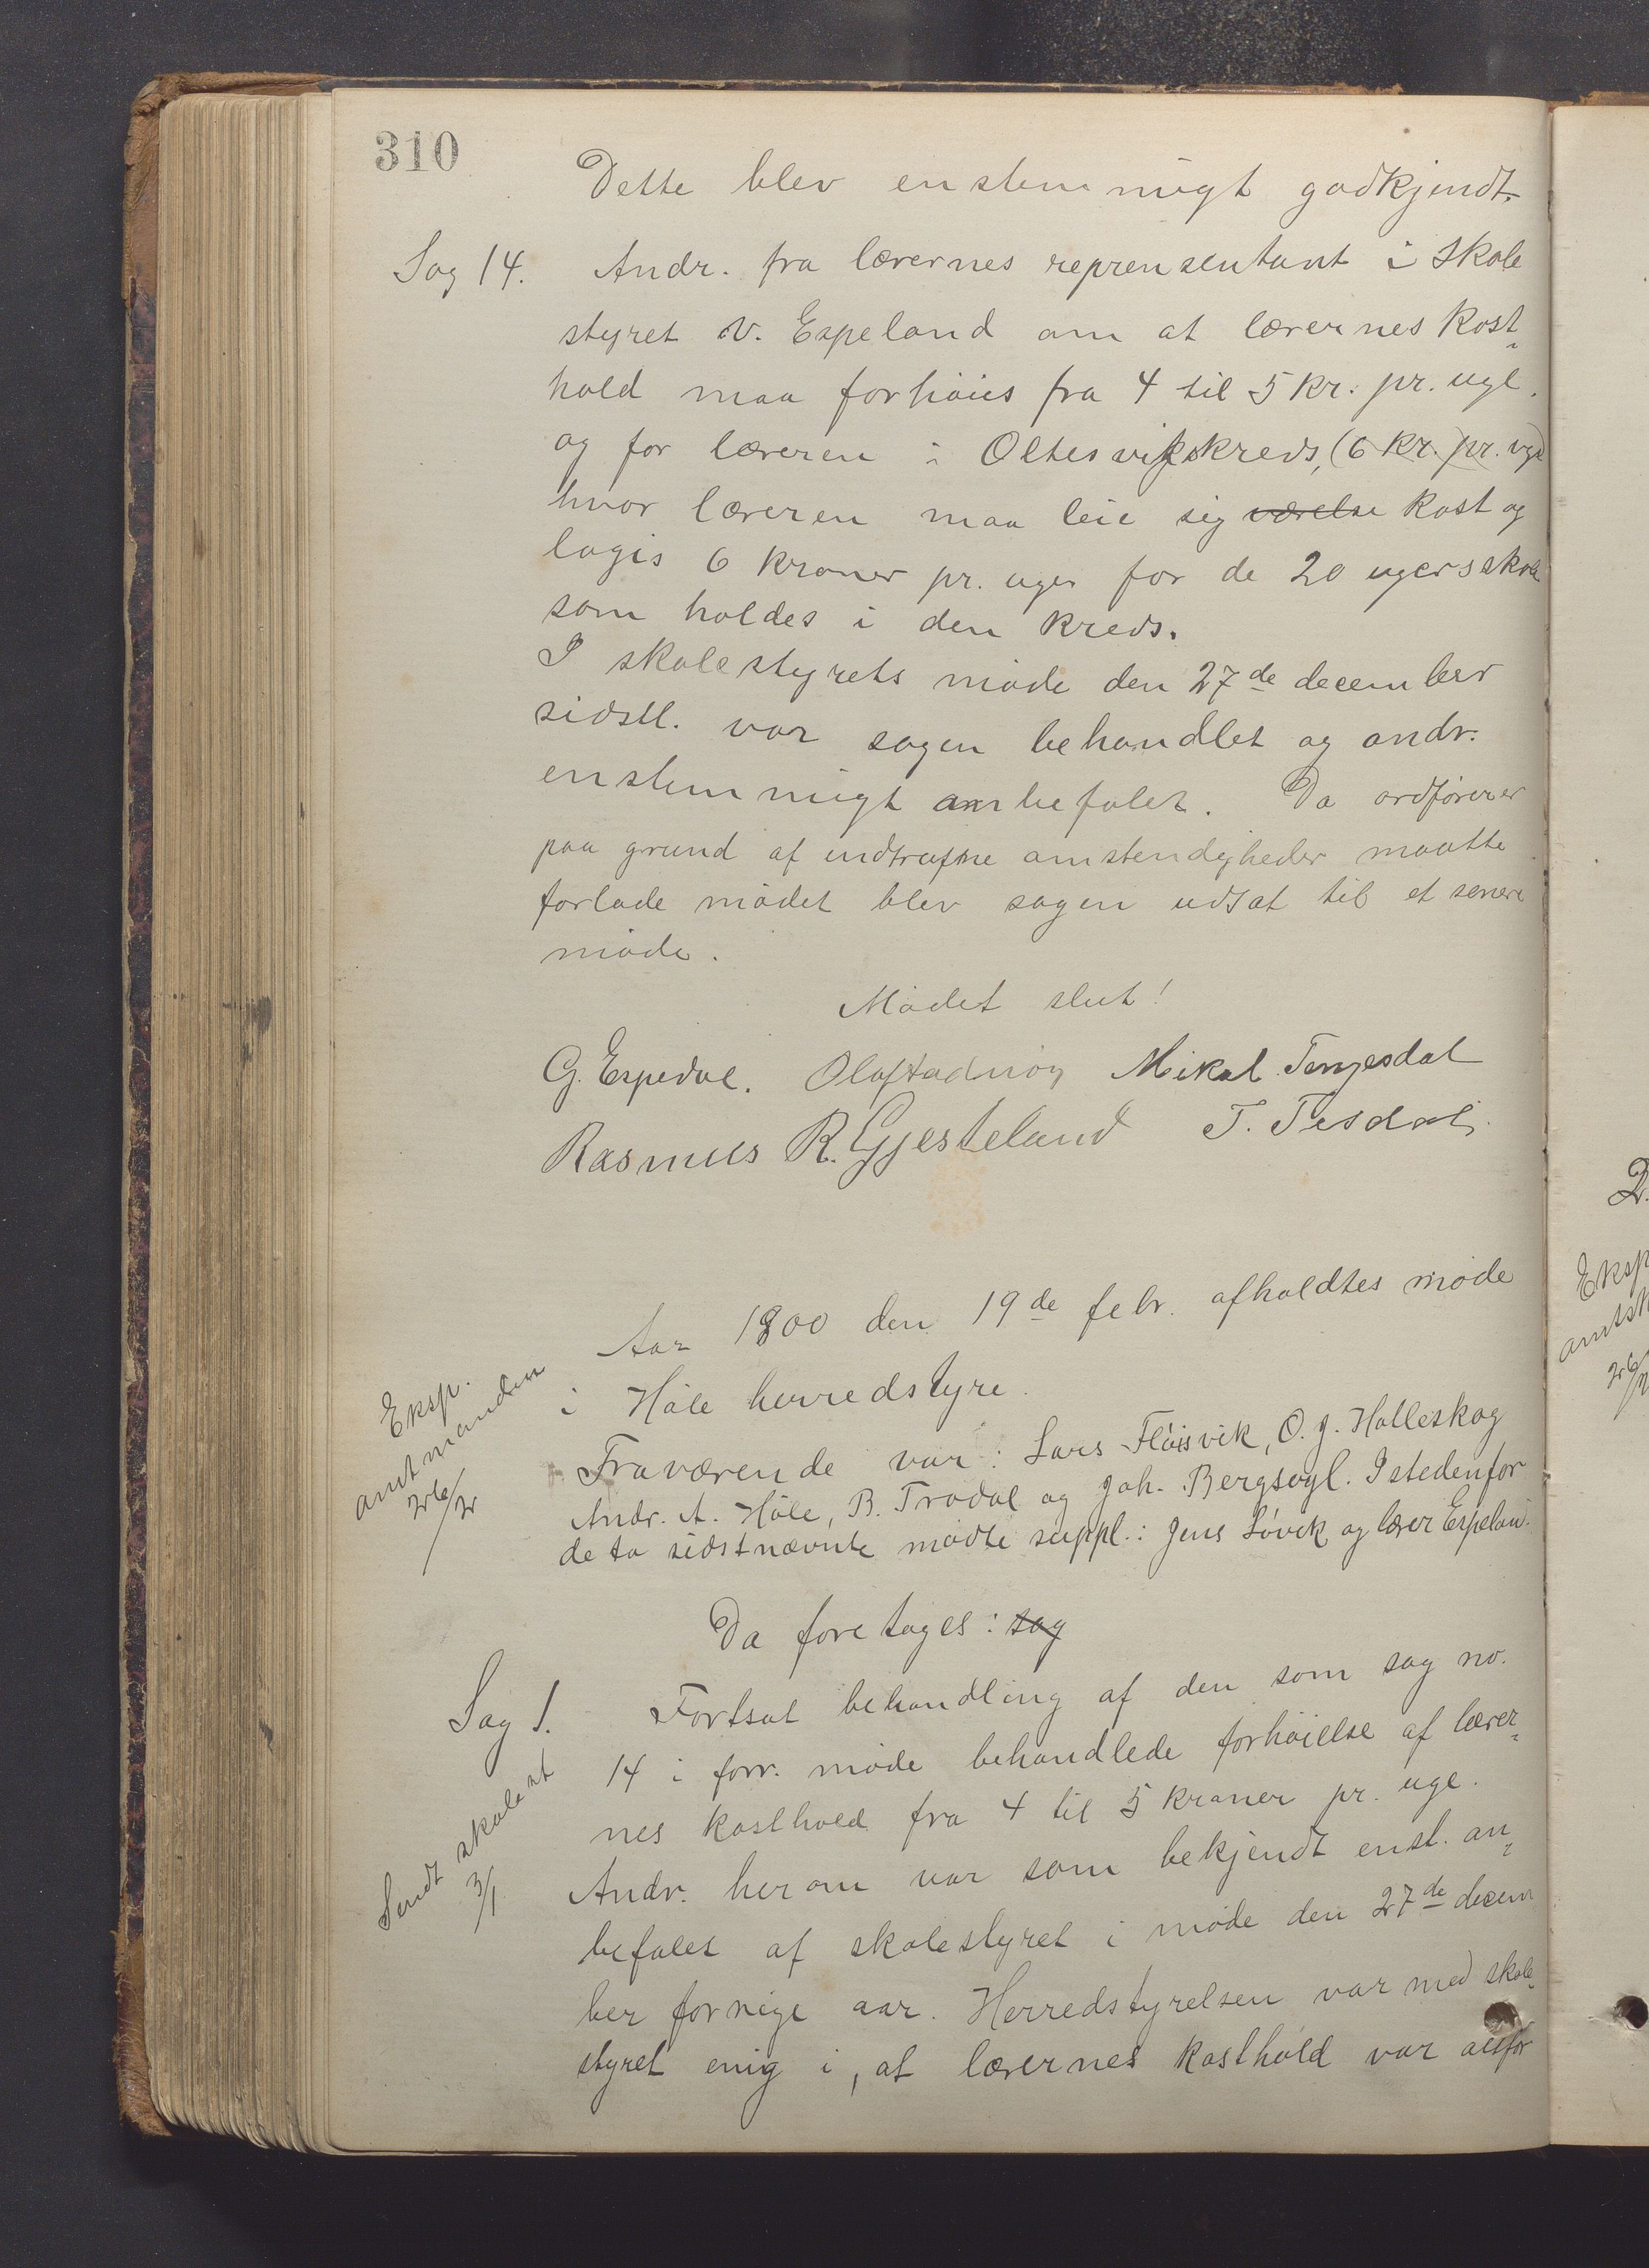 310
Dette blev enstemmigt godkjendt.
Sag 14. Andr. fra lærernes reprensentant i skole
styret V. Espeland om at lærernes kost-
hold maa forhöies fra 4 til 5 kr. pr. uge.
og for læreren i Oltesvikskreds, (6 kr. pr. uge)
hvor læreren maa leie sig værelse kost og
logis 6 kroner pr. uger for de 20 ugers skole
som holdes i den kreds.
I skolestyrets möde den 27de december
sidstl. var sagen behandlet og andr.
enstemmigt anbefalet. Da ordförerer
paa grund af indtrufne omstendigheder maatte
forlade mödet blev sagen udsat til et senere
möde.
Mödet slut!
G. Espedal. Olaf Mikal Tengesdal
Rasmus R. Gjesteland T. Tesdal
Aar 1900 den 19de febr. afholdtes möde
i Höle herredstyre.
Eksp.
amtmanden
26/2
Fraværende var: Lars Flöisvik, O. J. Holleskog
Andr. A. Höle, B. Trodal og Joh. Bergsagl. Istedenfor
de to sidstnævnte mödte suppl.: Jens Lövik og lærer Espeland.
Da foretages: sag
Sag 1. Fortsat behandling af den som sag no.
14 i forr. möde behandlede forhöielse af lærer-
nes kosthold fra 4 til 5 kroner pr. uge.
Sendt
3/1
Andr. herom var som bekjendt enst. an-
befalet af skolestyret i möde den 27de decem
ber forrige aar. Herredstyrelsen var med skole-
styret enig i, at lærernes kosthold var altfor
2.
Eksp
amtsk
26/2